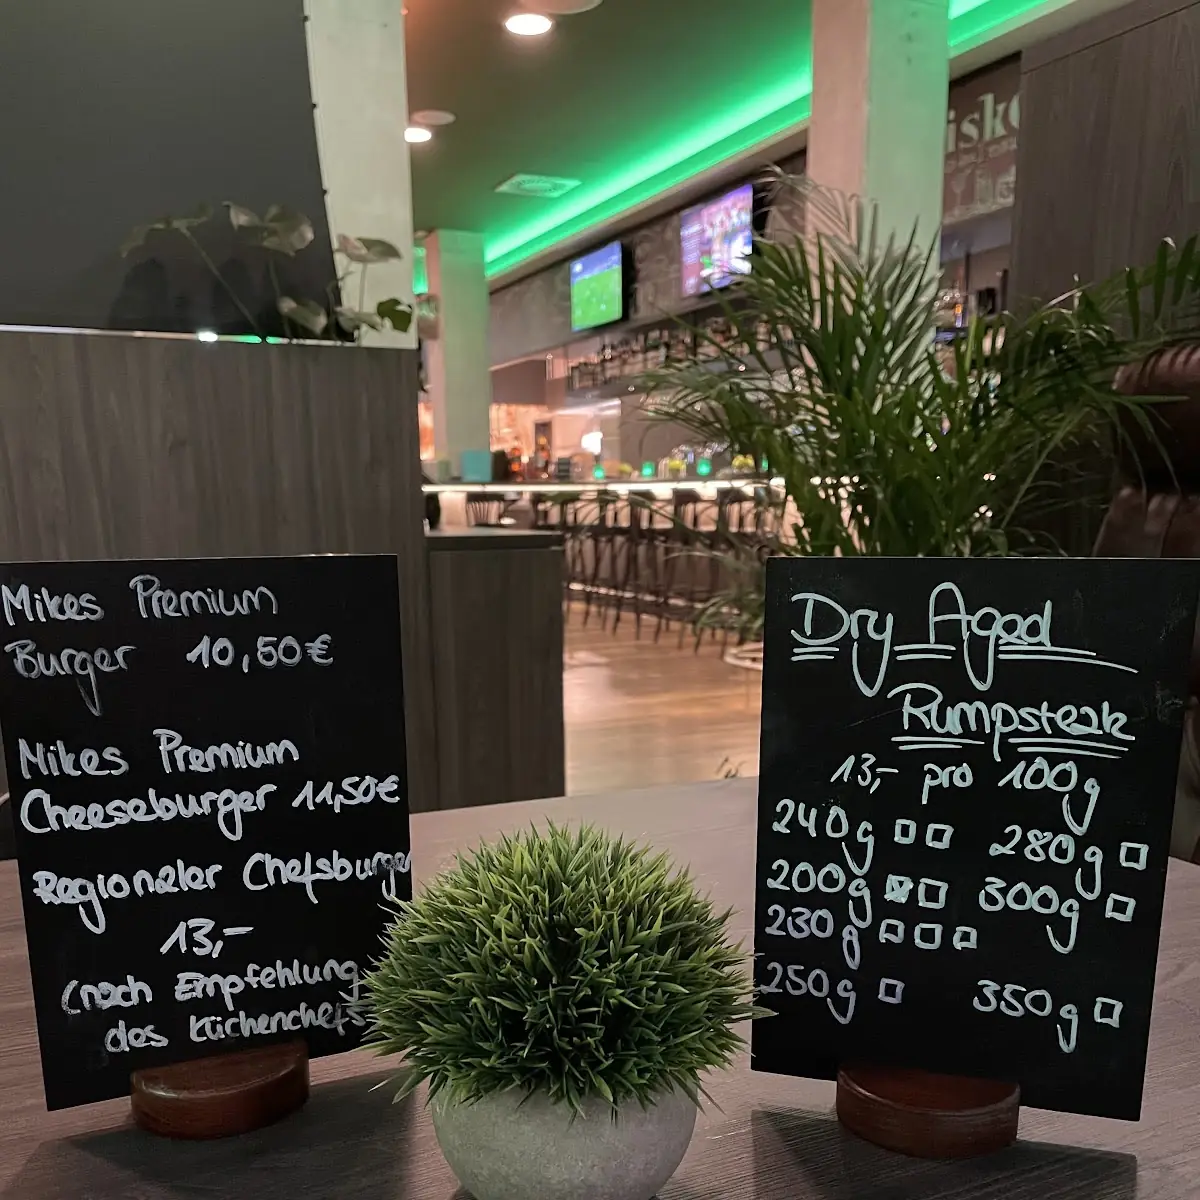 Mikes Premium
Burger 10,50€
Mikes Premium
Cheeseburger 11,50€
Regionaler Chefsburger
13,-
(nach Empfehlung
des Küchenchefs
Dry Aged
Rumpsteak
13,- pro 100g
240g □ □ 280g □
200g ☒ □ 300g □
230g □ □ □
250g □ 350g □